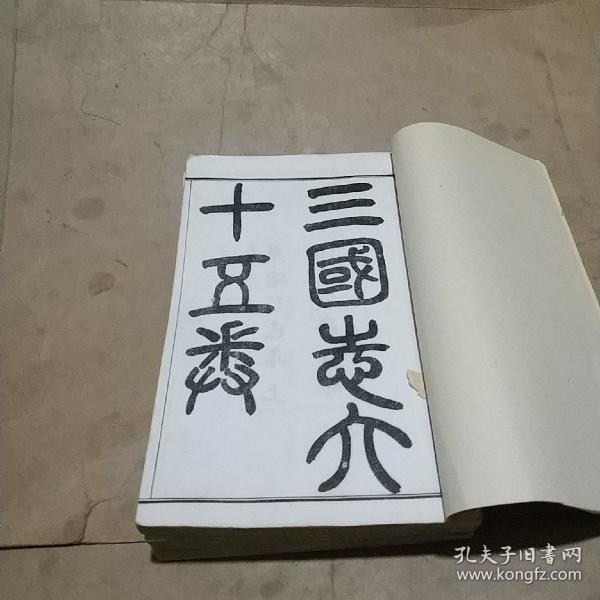 三國志六
十五卷
孔夫子旧書网
www.kongfz.com